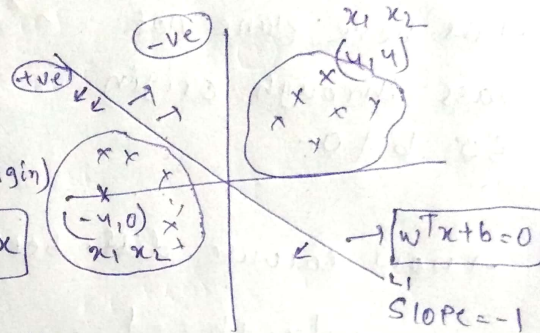 x1 x2
-ve
(4,4)
+ve
gin)
(-4,0)
x1 x2
x
wᵀx+b=0
SLOPE=-1